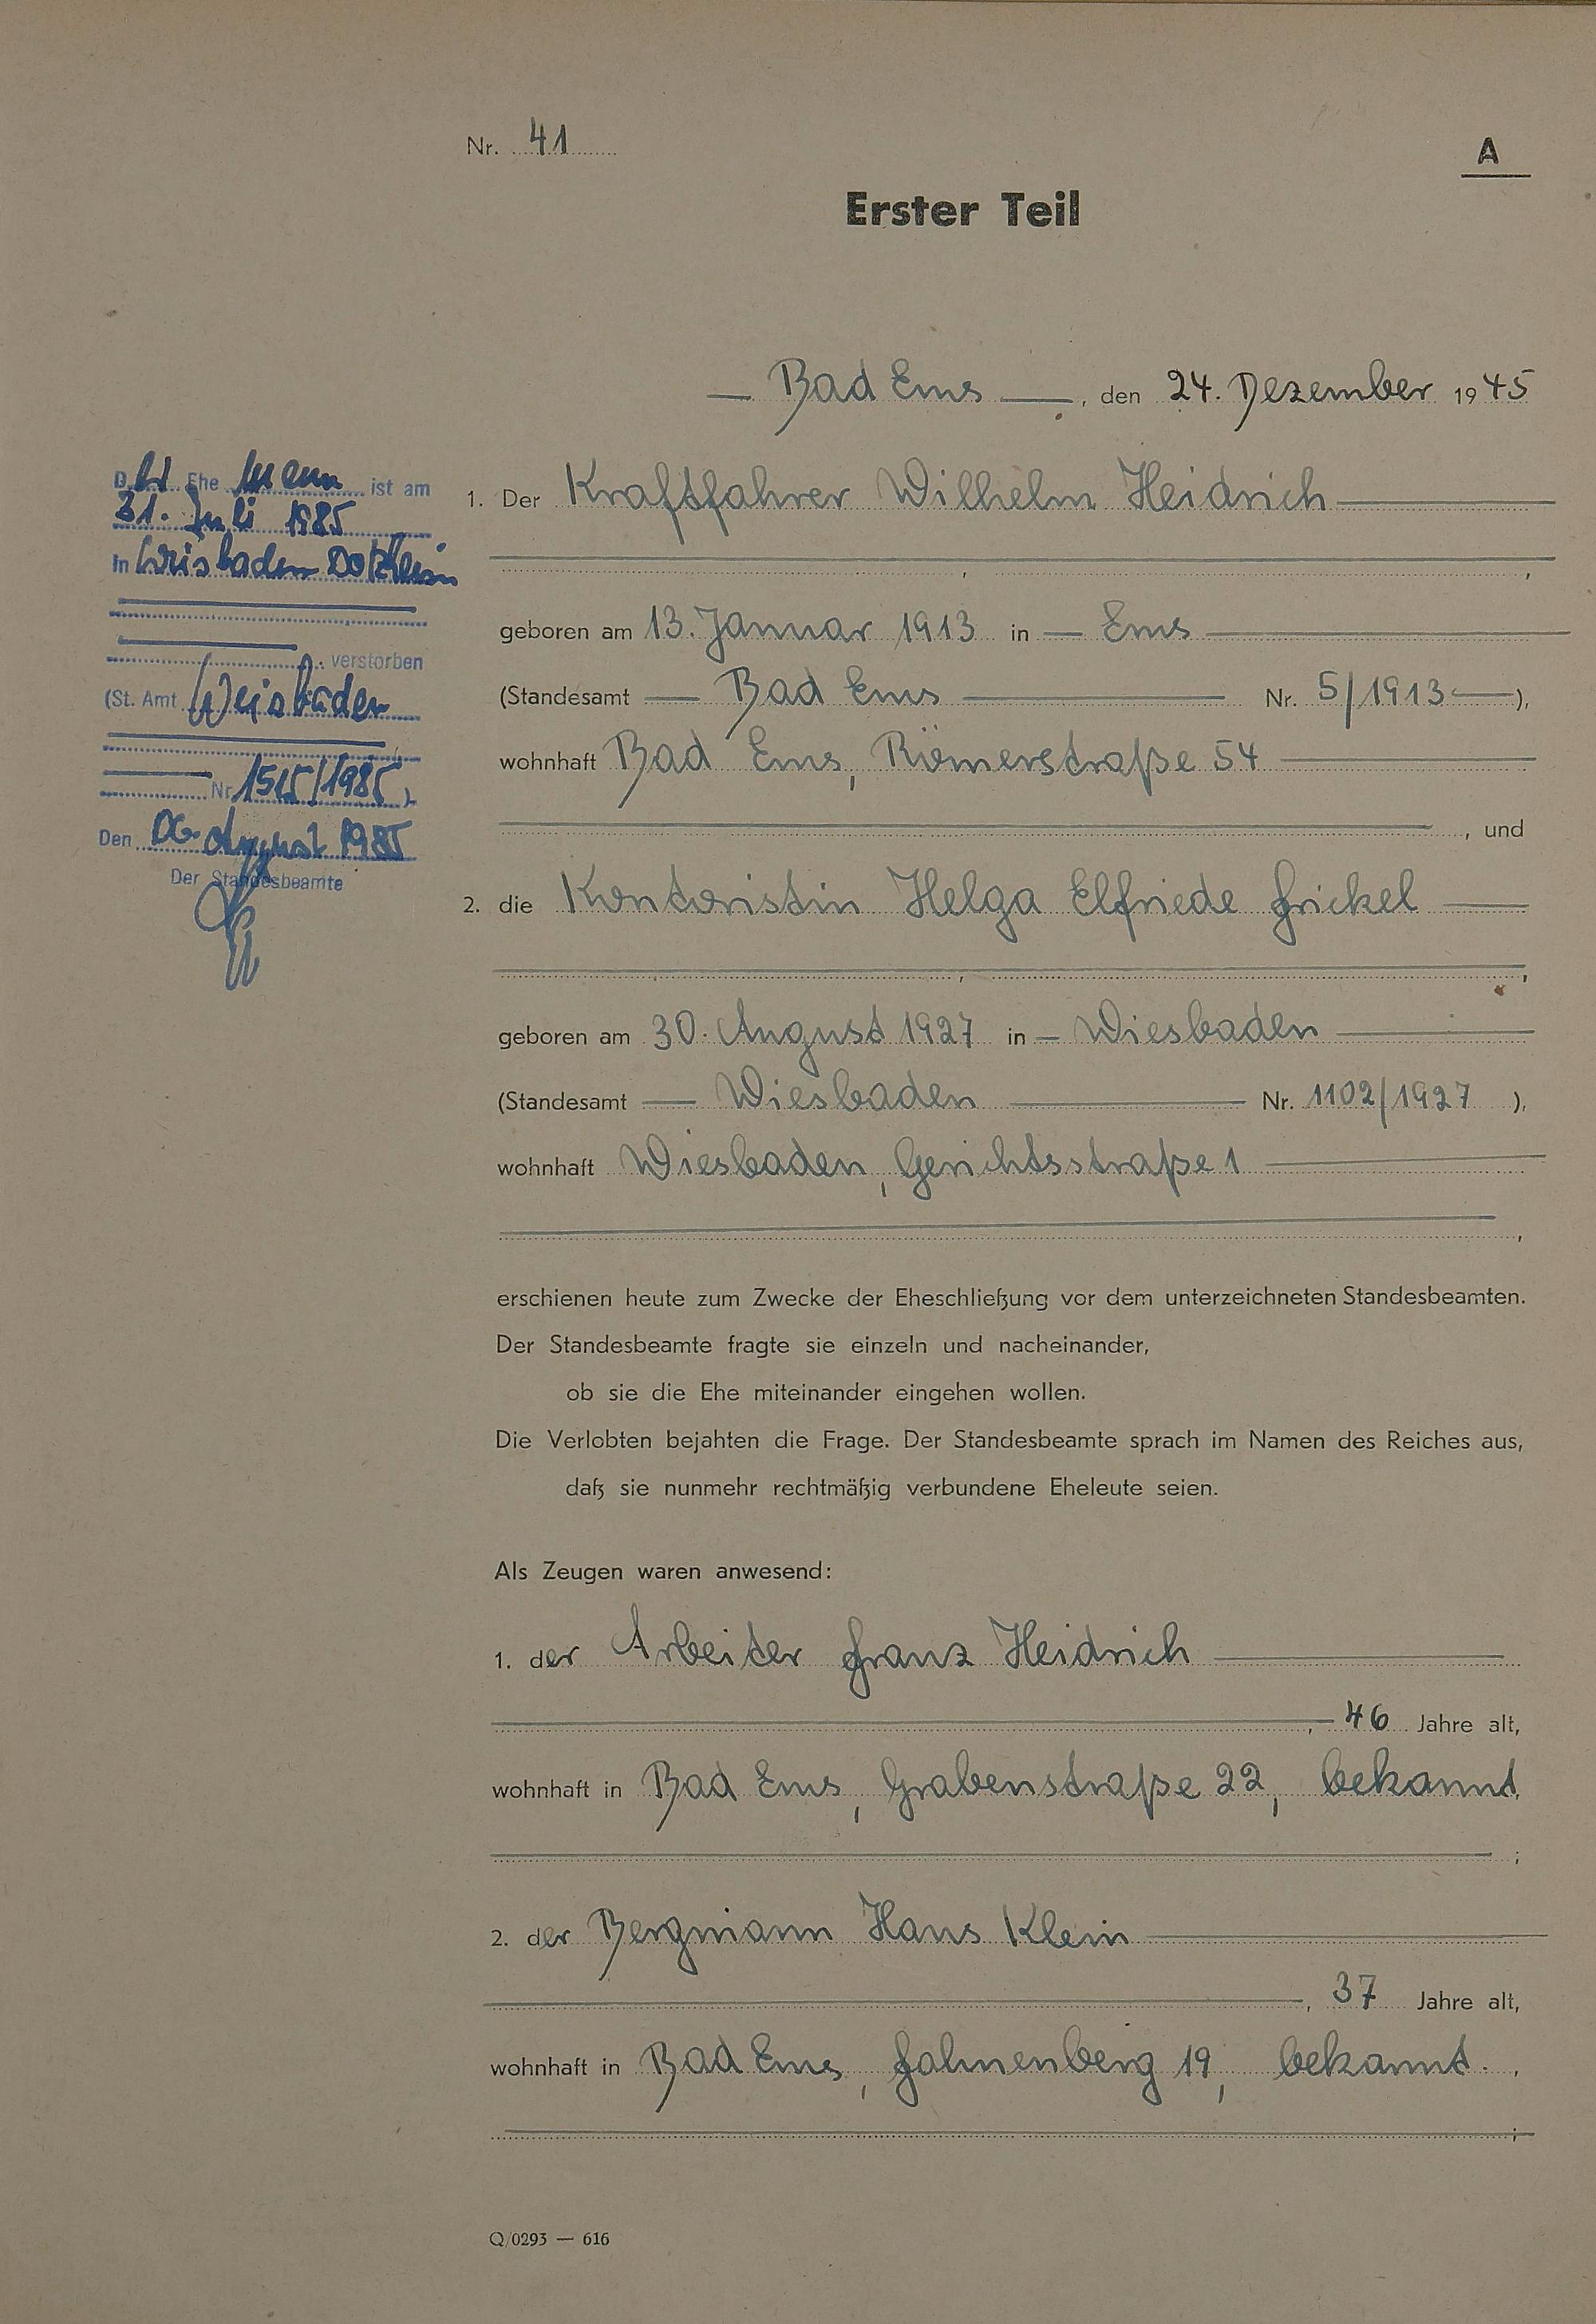 Nr. 41
A
Erster Teil
Bad Ems, den 24. Dezember 1945
Der Ehe Mann ist am
31. Juli 1985
in Wiesbaden Dotzheim
verstorben
(St. Amt Wiesbaden
Nr. 1515/1985)
Den 06. August 1985
Der Standesbeamte
1. Der Kraftfahrer Wilhelm Heidrich
,
geboren am 13. Januar 1913 in Ems
(Standesamt Bad Ems Nr. 5/1913),
wohnhaft Bad Ems, Römerstraße 54
, und
2. die Kontoristin Helga Elfriede Frickel
,
geboren am 30. August 1927 in Wiesbaden
(Standesamt Wiesbaden Nr. 1102/1927 ),
wohnhaft Wiesbaden, Gerichtsstraße 1
,
erschienen heute zum Zwecke der Eheschließung vor dem unterzeichneten Standesbeamten.
Der Standesbeamte fragte sie einzeln und nacheinander,
ob sie die Ehe miteinander eingehen wollen.
Die Verlobten bejahten die Frage. Der Standesbeamte sprach im Namen des Reiches aus,
daß sie nunmehr rechtmäßig verbundene Eheleute seien.
Als Zeugen waren anwesend:
1. der Arbeiter Franz Heidrich
, 46 Jahre alt,
wohnhaft in Bad Ems, Grabenstraße 22, bekannt,
;
2. der Bergmann Hans Klein
, 37 Jahre alt,
wohnhaft in Bad Ems, Fahnenberg 19, bekannt.,
;
Q/0293 — 616